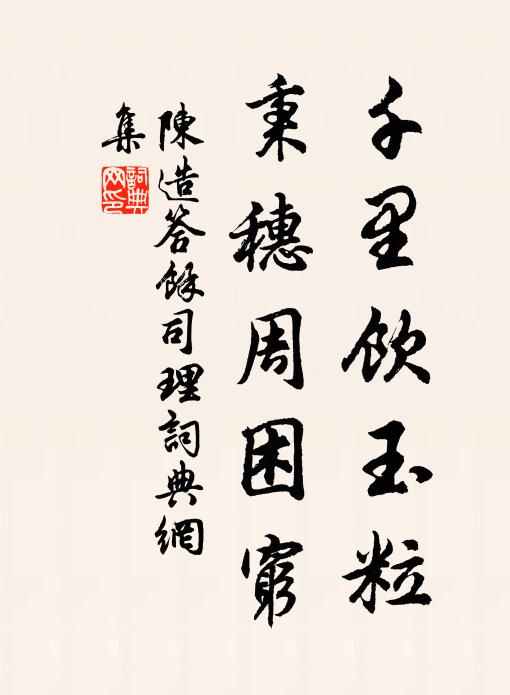 千里飲玉粒
秉穗周困窮
陳造答餘司理詞典網
集
詞典
网印